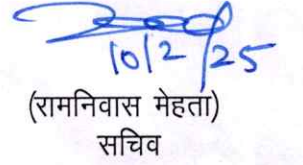 10/2/25
(रामनिवास मेहता)
सचिव